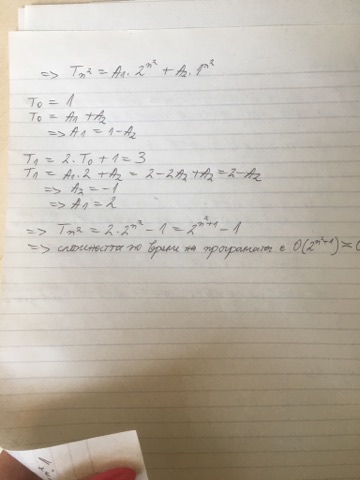 => T_{n^2} = A_1 . 2^{n^2} + A_2 . 1^{n^2}
T_0 = 1
T_0 = A_1 + A_2
=> A_1 = 1 - A_2
T_1 = 2 . T_0 + 1 = 3
T_1 = A_1 . 2 + A_2 = 2 - 2A_2 + A_2 = 2 - A_2
=> A_2 = -1
=> A_1 = 2
=> T_{n^2} = 2 . 2^{n^2} - 1 = 2^{n^2+1} - 1
=> сложността по време на програмата е O(2^{n^2+1}) ≍